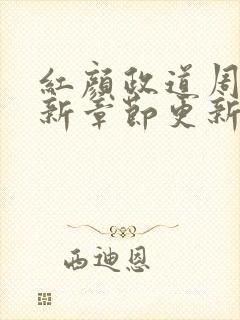 紅顏政道周
新章節更新
西迪恩